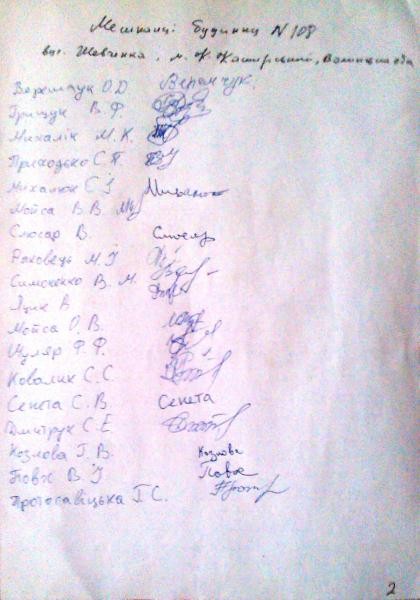 Мешканці будинку N 108
вул. Шевченка, м. К. Каширський, Волинська обл
Веремчук О.Д. Веремчук.
Грищук В.Ф.
Михалік М.К.
Приходько С.П.
Михалюк С.І
Мойса В.В.
Слюсар В. Слюсар
Раковець М.І
Симоненко В.М.
Яцик А
Мойса О.В.
Муляр Ф.Ф.
Ковалик С.С.
Сенета С.В. Сенета
Дмитрук С.Е
Козлова Г.В. Козлова
Повх В.І Повх
Протосавіцька Г.С.
2